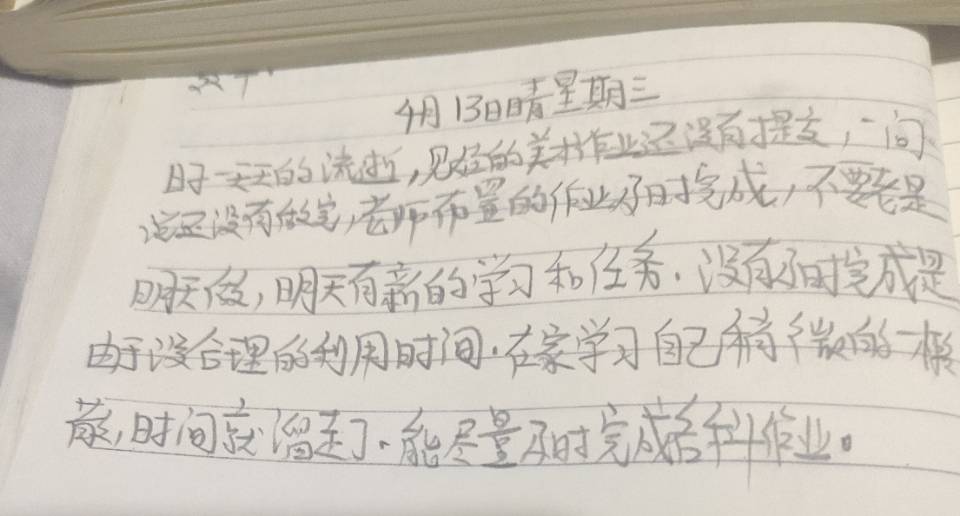 4月13日晴星期三
时一天天的流逝,见经的美术作业还没有提交,一问
说还没有做完,老师布置的作业及时完成,不要老是
明天做,明天有新的学习和任务.没有及时完成是
由于没合理的利用时间.在家学习自己稍微的一磨
蔽,时间就溜走了.能尽量及时完成各科作业。